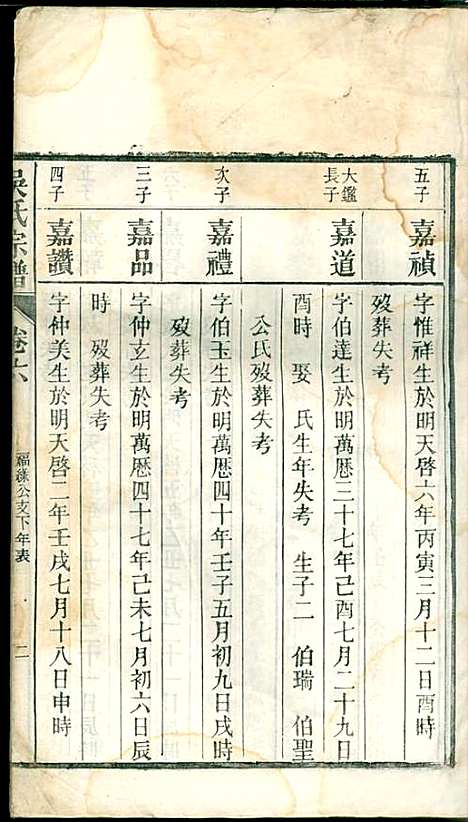 五子 嘉禎 字惟祥生於明天啓六年丙寅三月十二日酉時
歿葬失考
大鑑長子 嘉道 字伯達生於明萬歷三十七年己酉七月二十九日
酉時 娶 氏生年失考 生子二 伯瑞 伯聖
公氏歿葬失考
次子 嘉禮 字伯玉生於明萬歷四十年壬子五月初九日戌時
歿葬失考
三子 嘉品 字仲玄生於明萬歷四十七年己未七月初六日辰
時 歿葬失考
四子 嘉讚 字仲美生於明天啓二年壬戌七月十八日申時
吳氏宗譜 卷六 福緣公支下年表 二